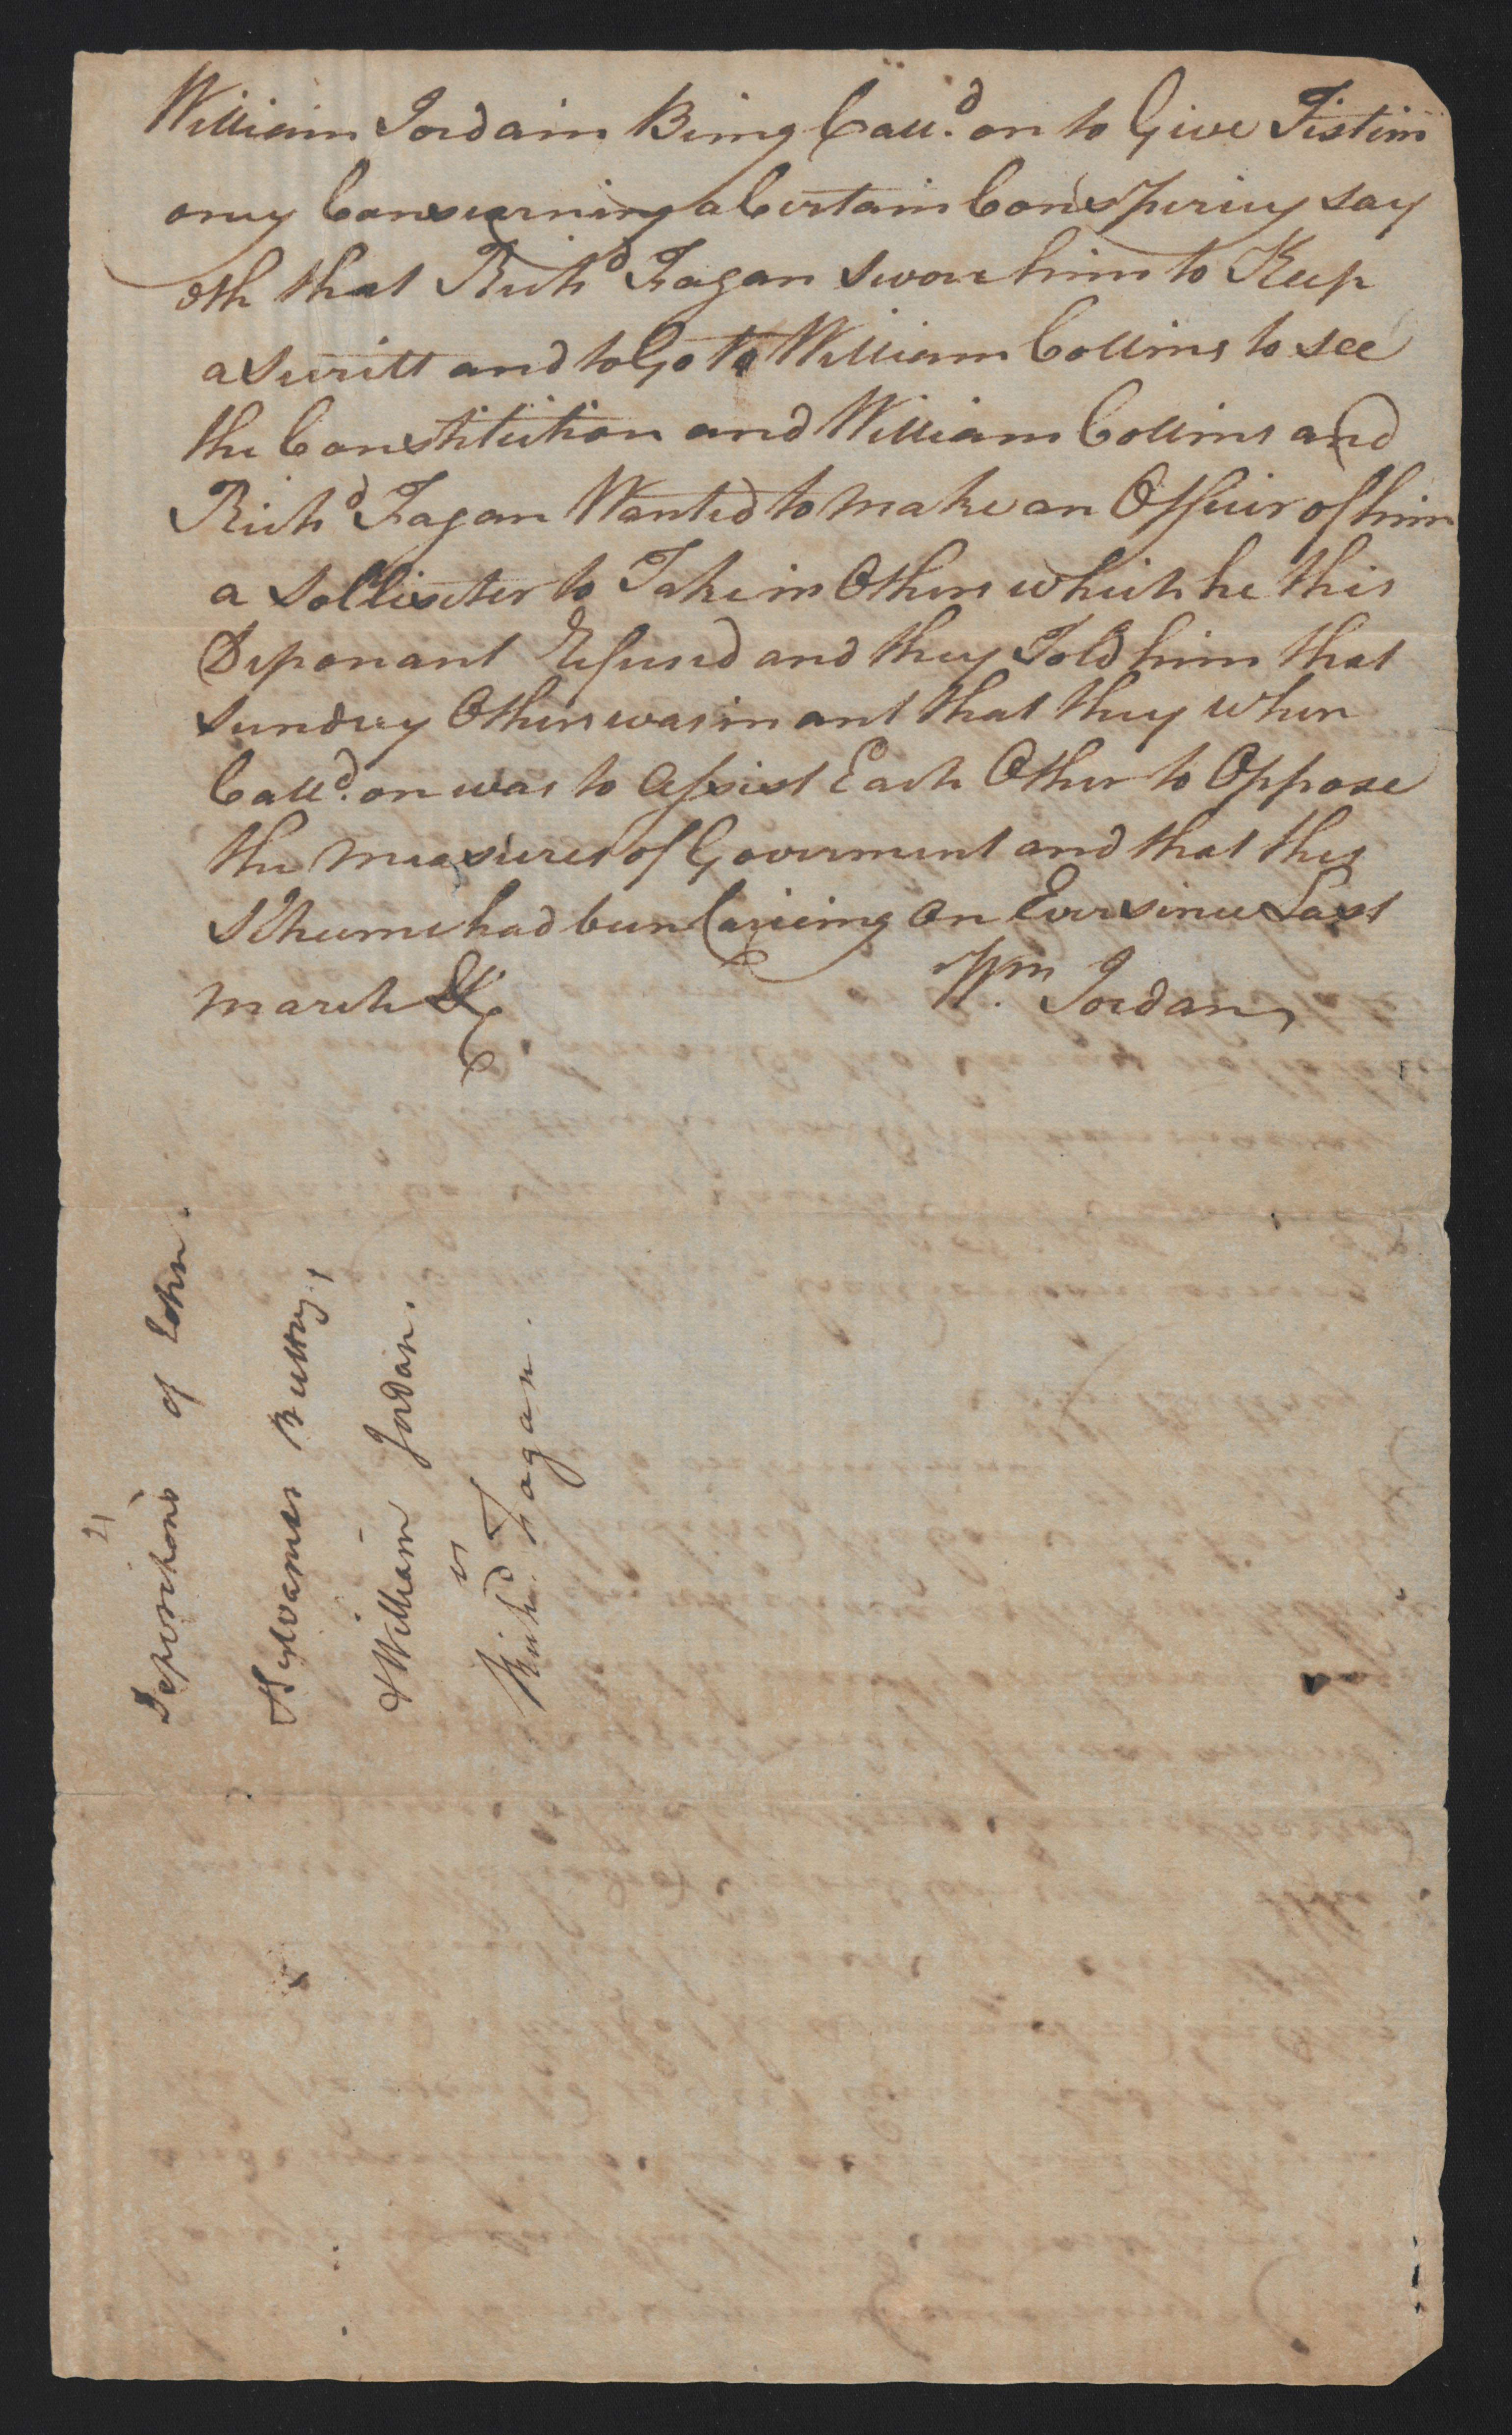 William Jordain Being Call.d on to Give Testim
ony Conscerning a Certain Conspiricy say
eth that Rich.d Fagan swore him to Keep
a Secritt and to Go to William Collins to see
the Constitution and William Collins and
Rich.d Fagan Wanted to make an Officir of him
a Sollisiter to Take in Others which he this
Deponant Refused and they Told him that
sundrey Others was in ant that they when
Call.d on was to Assist Each Other to Oppose
the measures of Goverment and that this
Scheeme had been Carieing on Ever since Last
march &c
Wm. Jordan
Depositions of John
Sylvanus Buttry,
& William Jordan.
vs
Rich.d Fagan.